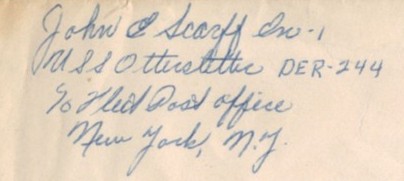 John E Scarff En-1
USS Otterstetter DER-244
℅ Fleet Post office
New York, N.Y.